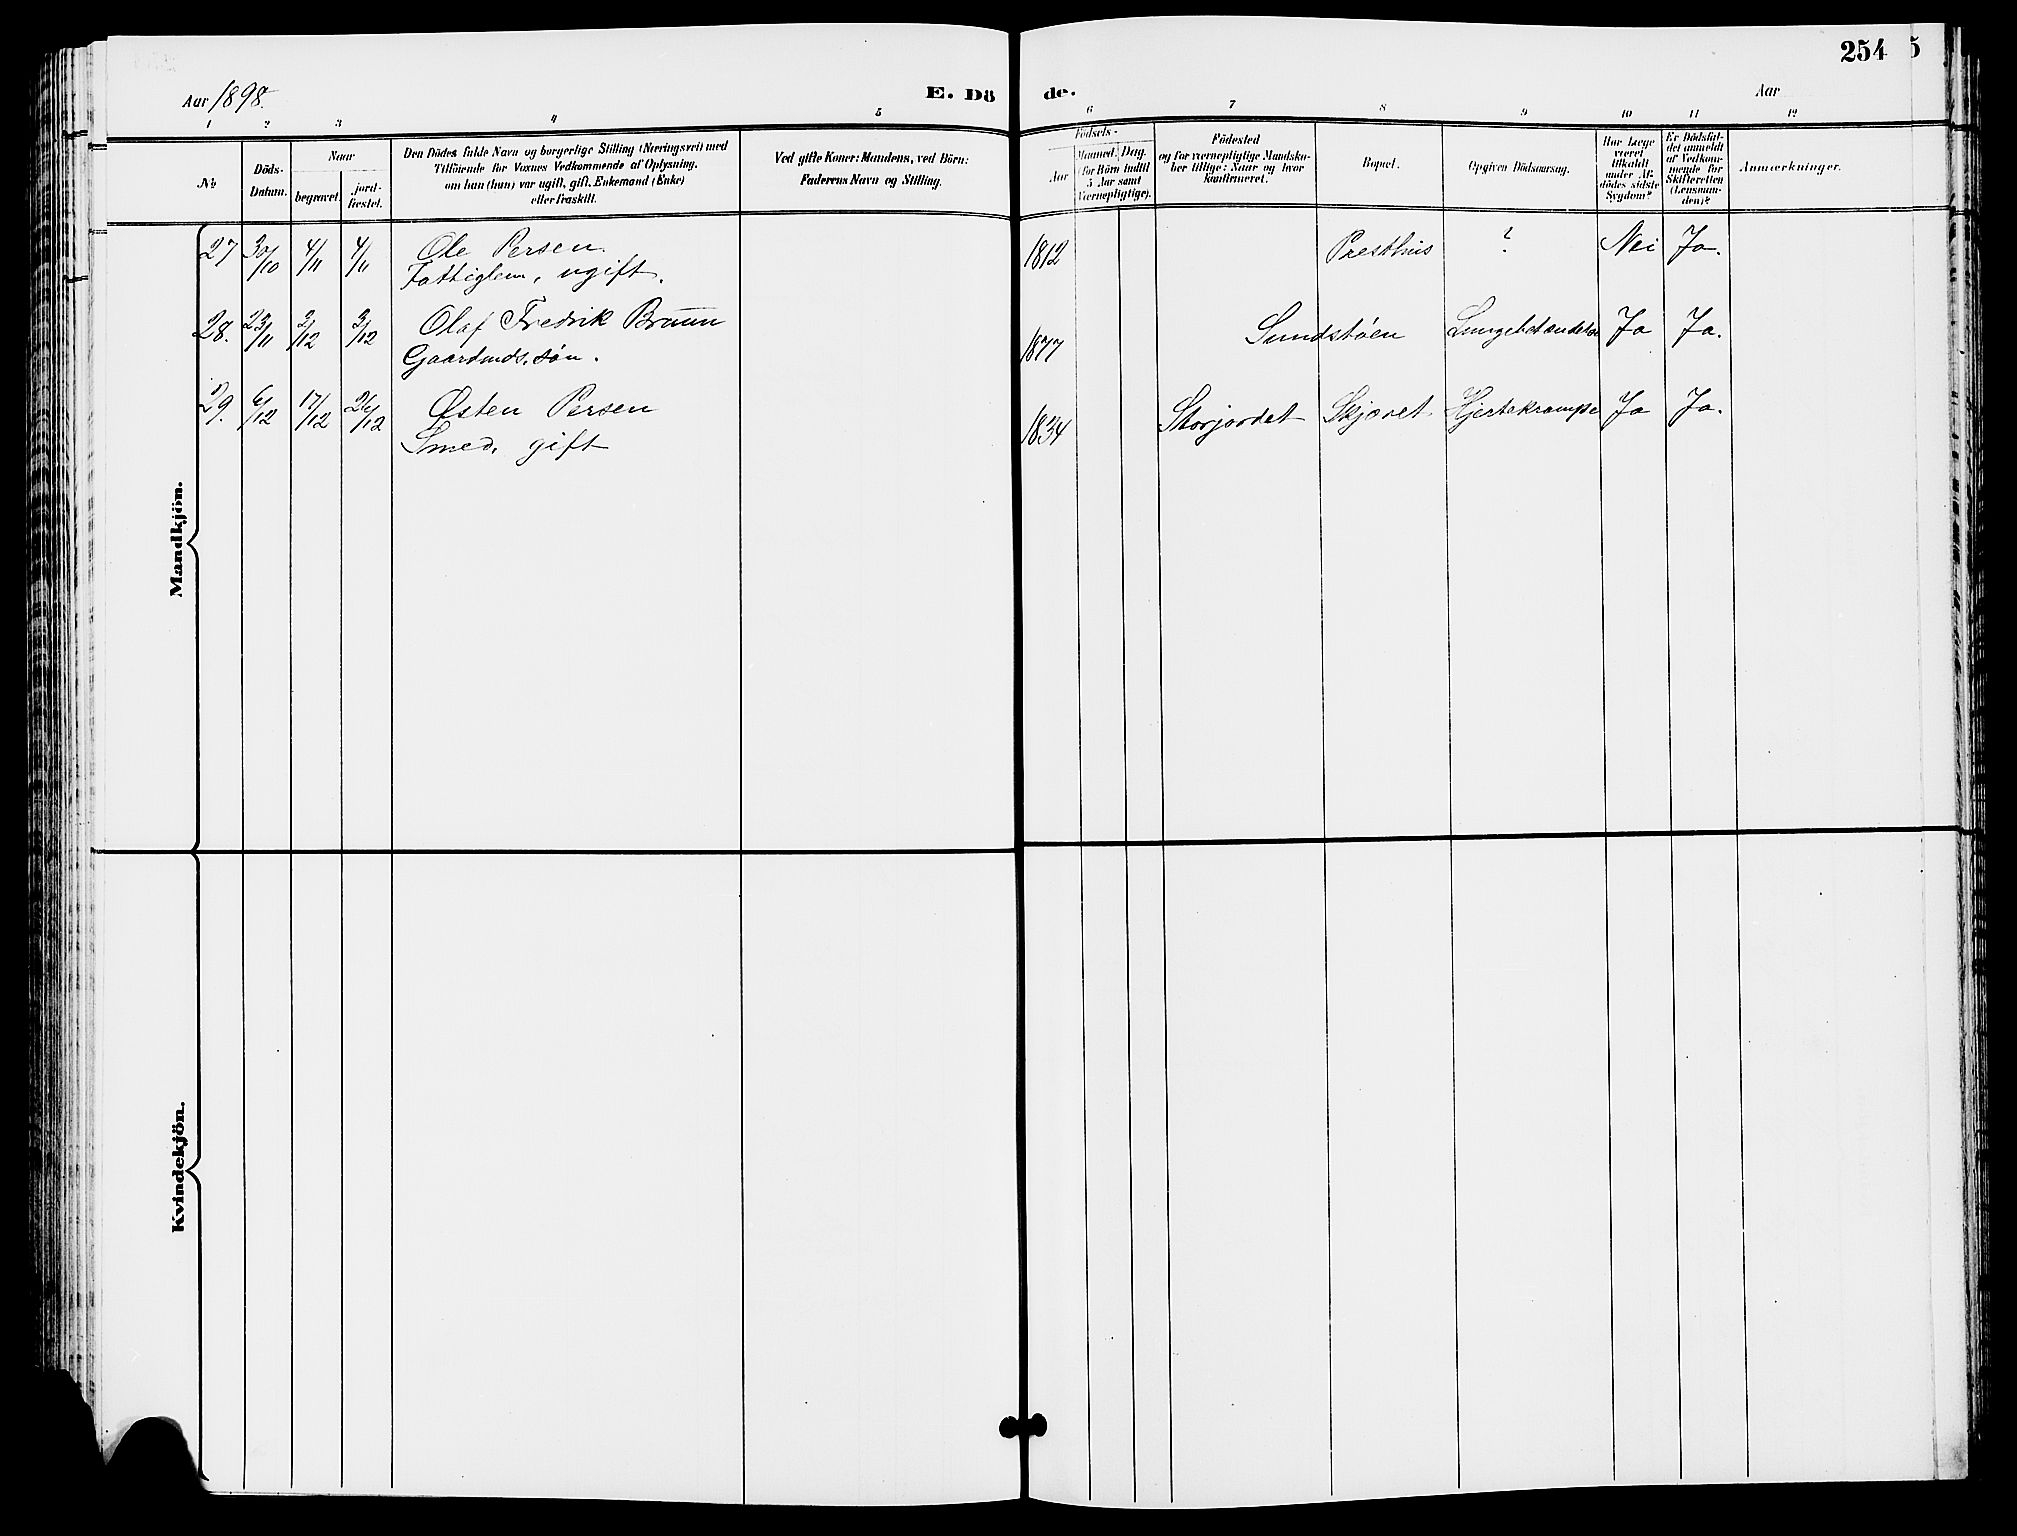 254 5
Aar 1898.
E. Dö de.
Aar
1 2 3 4 5 6 7 8 9 10 11 12
No
Döds-Datum.
Naar
begravet.
jord-fæstet.
Den Dödes fulde Navn og borgerlige Stilling (Næringsvei) med
Tilföiende for Voxnes Vedkommende af Oplysning,
om han (hun) var ugift, gift, Enkemand (Enke)
eller fraskilt.
Ved gifte Koner: Mandens, ved Börn:
Faderens Navn og Stilling.
Födsels-
Aar
Maaned. Dag.
(for Börn indtil
5 Aar samt
Værnepligtige).
Födested
og for værnepligtige Mandska-
ber tillige: Naar og hvor
konfirmeret.
Bopæl.
Opgiven Dödsaarsag.
Har Læge
været
tilkaldt
under Af-
dödes sidste
Sygdom?
Er Dödsfal-
det anmeldt
af Vedkom-
mende for
Skifteretten
(Lensman-
den)?
Anmærkninger.
Mandkjön.
27 30/10 4/11 4/11 Ole Persen 1812 Presthus ? Nei Ja.
Fattiglem, ugift.
28. 23/11 2/12 3/12 Olaf Fredrik Bruun 1877 Sundstöen Lungebetændelse Ja Ja.
Gaardmds. søn.
29. 6/12 17/12 26/12 Østen Persen 1834 Storjordet Skjæret Hjertekrampe Ja Ja.
Smed, gift
Kvindekjön.